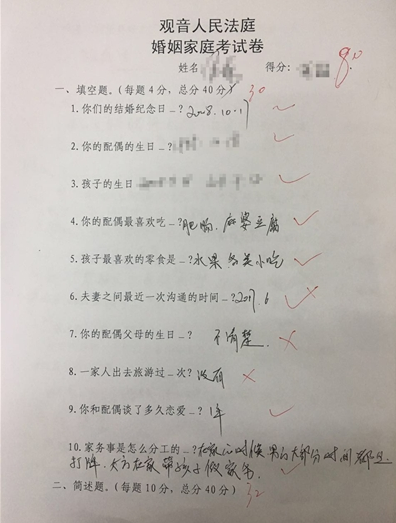 观音人民法庭
婚姻家庭考试卷
姓名 得分： 80
一、填空题。（每题4分，总分40分） 30
1.你们的结婚纪念日_？2008.10.17
2.你的配偶的生日_？
3.孩子的生日
4.你的配偶最喜欢吃_？肥肠、麻婆豆腐
5.孩子最喜欢的零食是_？水果 各类小吃
6.夫妻之间最近一次沟通的时间_？2017.6
7.你的配偶父母的生日_？ 不清楚.
8.一家人出去旅游过_次？没有
9.你和配偶谈了多久恋爱_？ 1年
10.家务事是怎么分工的_？在家的时候 男的大部分时间都是
打牌、女方在家带孩子做家务.
二、简述题。（每题10分，总分40分） 32